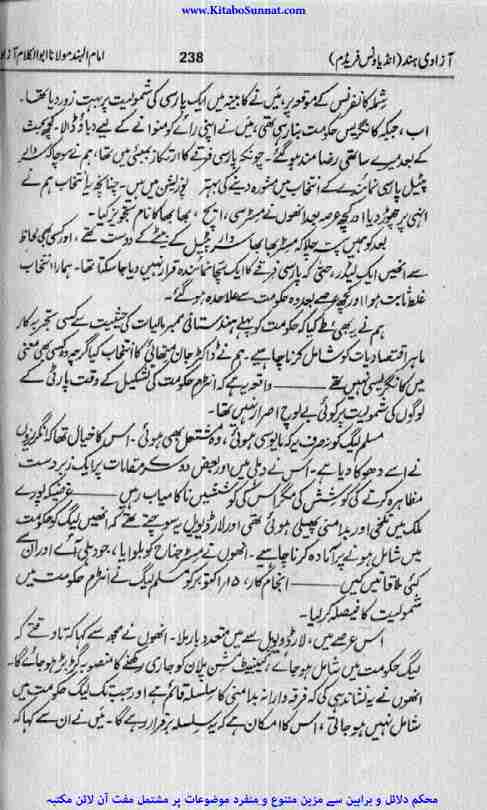 www.KitaboSunnat.com
آزادی ہند (انڈیا ونس فریڈم) 238 امام الہند مولانا ابوالکلام آزاد
شملہ کانفرنس کے موقعہ پر، میں نے کابینہ میں ایک پارسی کی شمولیت پر بہت زور دیا تھا۔
اب، جبکہ کانگریس حکومت بنا رہی تھی، میں نے اپنی رائے کو منوانے کے لیے دباؤ ڈالا۔ کچھ بحث
کے بعد میرے ساتھی رضامند ہو گئے۔ چونکہ پارسی فرقے کا ارتکاز بمبئی میں تھا، ہم نے سوچا کہ سردار
پٹیل پارسی نمائندے کے انتخاب میں مشورہ دینے کی بہتر پوزیشن میں ہیں۔ چنانچہ یہ انتخاب ہم نے
انہی پر چھوڑ دیا اور کچھ عرصہ بعد انھوں نے مسٹر سی، ایچ، بھابھا کا نام تجویز کیا۔
بعد کو ہمیں پتہ چلا کہ مسٹر بھابھا سردار پٹیل کے بیٹے کے دوست تھے، اور کسی بھی لحاظ
سے انھیں ایک لیڈر، حتی کہ پارسی فرقے کا ایک سچا نمائندہ قرار نہیں دیا جا سکتا تھا۔ ہمارا انتخاب
غلط ثابت ہوا اور کچھ عرصے بعد وہ حکومت سے علاحدہ ہو گئے۔
ہم نے یہ بھی طے کیا کہ حکومت کو پہلے ہندستانی ممبر مالیات کی حیثیت سے کسی تجربہ کار
ماہر اقتصادیات کو شامل کرنا چاہیے۔ ہم نے ڈاکٹر جان متھائی کا انتخاب کیا اگرچہ وہ کسی بھی معنی
میں کانگریسی نہیں تھے ——— واقعہ یہ ہے کہ انٹرم حکومت کی تشکیل کے وقت پارٹی کے
لوگوں کی شمولیت پر کوئی بے لوچ اصرار نہیں تھا۔
مسلم لیگ کو نہ صرف یہ کہ مایوسی ہوئی، وہ مشتعل بھی ہوئی۔ اس کا خیال تھا کہ انگریزوں
نے اسے دھوکا دیا ہے۔ اس نے دہلی میں اور بعض دوسرے مقامات پر ایک زبردست
مظاہرہ کرنے کی کوشش کی مگر اس کی کوششیں ناکامیاب رہیں ——— غرضیکہ پورے
ملک میں تلخی اور بدامنی پھیلی ہوئی تھی اور لارڈ ویول یہ سوچتے تھے کہ انھیں لیگ کو حکومت
میں شامل ہونے پر آمادہ کرنا چاہیے۔ انھوں نے مسٹر جناح کو بلوایا، جو دہلی آئے اور ان سے
کئی ملاقاتیں کیں ——— انجام کار، ۱۵/اکتوبر کو مسلم لیگ نے انٹرم حکومت میں
شمولیت کا فیصلہ کر لیا۔
اس عرصے میں، لارڈ ویول سے میں متعدد بار ملا۔ انھوں نے مجھ سے کہا کہ تا وقتے کہ
لیگ حکومت میں شامل ہو جائے، کیبینٹ مشن پلان کو جاری رکھنے کا منصوبہ گڑبڑ ہو جائے گا۔
انھوں نے یہ نشاندہی کی کہ فرقہ دارانہ بدامنی کا سلسلہ قائم ہے اور جب تک لیگ حکومت میں
شامل نہیں ہو جاتی، اس کا امکان ہے کہ یہ سلسلہ برقرار رہے گا۔ میں نے ان سے کہا کہ
محکم دلائل و براہین سے مزین متنوع و منفرد موضوعات پر مشتمل مفت آن لائن مکتبہ